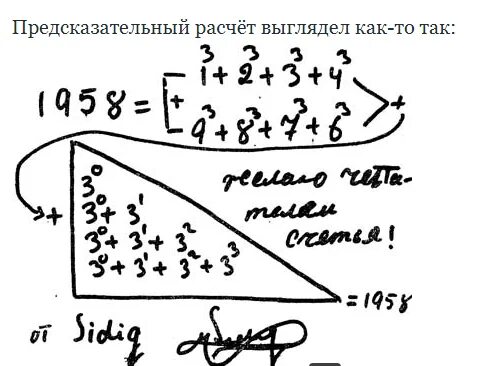 Предсказательный расчёт выглядел как-то так:
1³ + 2³ + 3³ + 4³
1958 = + +
9³ + 8³ + 7³ + 6³
3⁰
+ 3⁰ + 3¹
3⁰ + 3¹ + 3²
3⁰ + 3¹ + 3² + 3³
= 1958
желаю чита-
телям
счастья!
от Sidiq